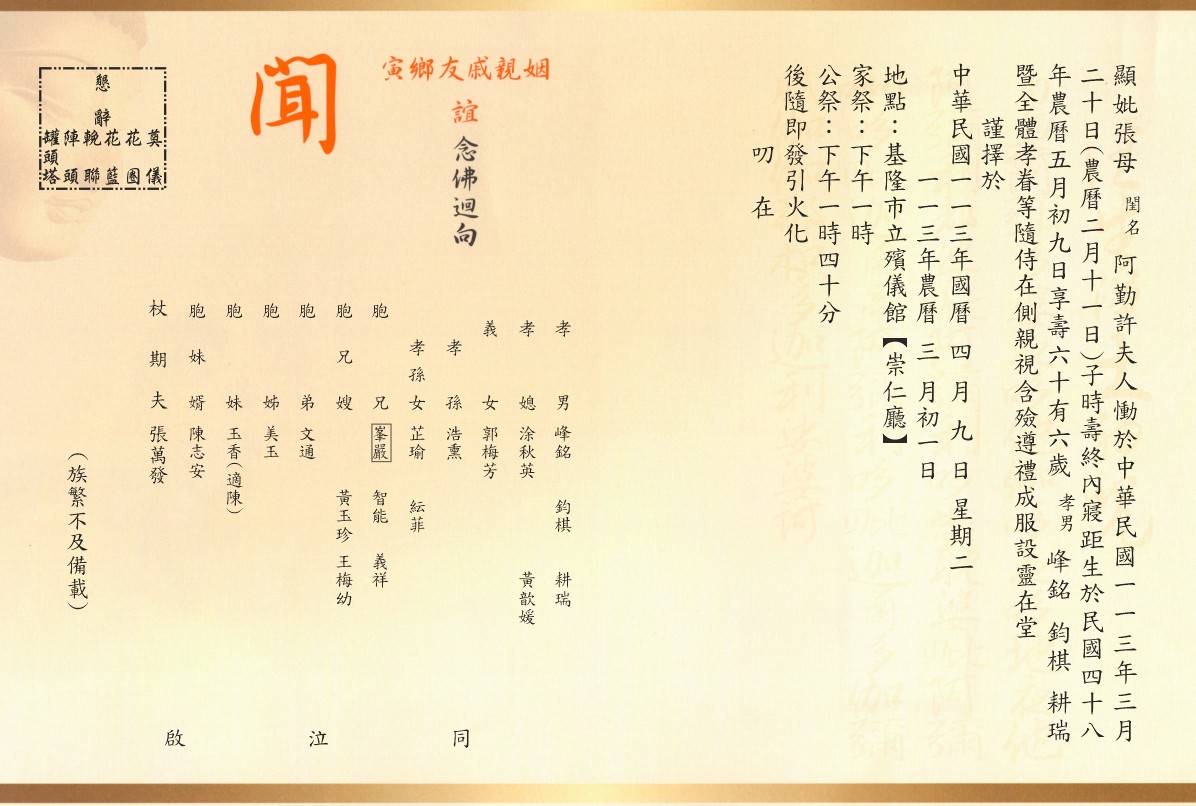 顯妣張母 閨名 阿勤許夫人慟於中華民國一一三年三月
二十日(農曆二月十一日)子時壽終內寢距生於民國四十八
年農曆五月初九日享壽六十有六歲 孝男 峰銘 鈞棋 耕瑞
暨全體孝眷等隨侍在側親視含殮遵禮成服設靈在堂
謹擇於
中華民國一一三年國曆 四 月 九 日 星期二
一一三年農曆 三 月初一日
地點：基隆市立殯儀館【崇仁廳】
家祭：下午一時
公祭：下午一時四十分
後隨即發引火化
叨 在
姻親戚友鄉寅
誼 念佛迴向
聞
懇辭
奠儀
花圈
花籃
輓聯
陣頭
罐頭塔
孝男 峰銘 鈞棋 耕瑞
孝媳 涂秋英 黃歆媛
義女 郭梅芳
孝孫 浩熏
孝孫女 芷瑜 紜菲
胞兄 峯嚴 智能 義祥
胞兄嫂 黃玉珍 王梅幼
胞弟 文通
胞姊 美玉
胞妹 玉香(適陳)
胞妹婿 陳志安
杖期夫 張萬發
(族繁不及備載)
同 泣 啟